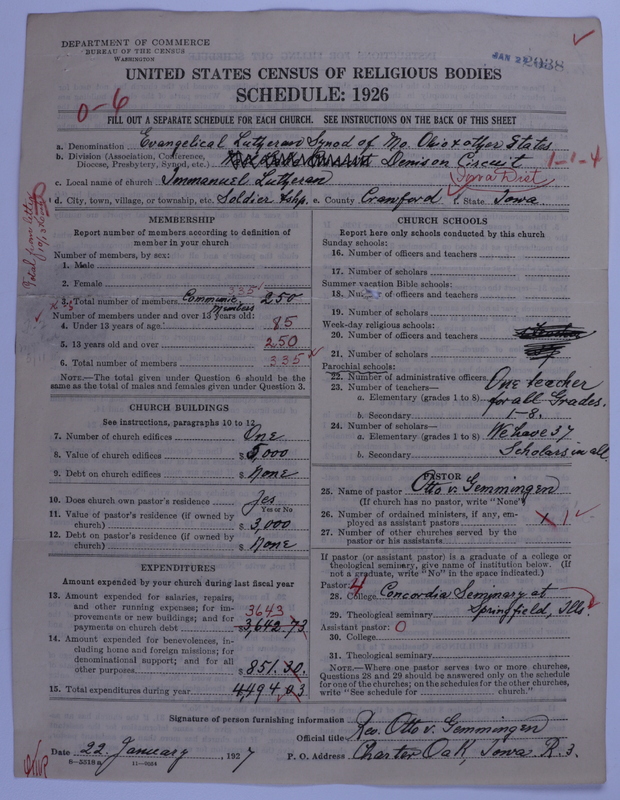 DEPARTMENT OF COMMERCE
BUREAU OF THE CENSUS
WASHINGTON
JAN 2
2038
UNITED STATES CENSUS OF RELIGIOUS BODIES
SCHEDULE: 1926
0-6
FILL OUT A SEPARATE SCHEDULE FOR EACH CHURCH. SEE INSTRUCTIONS ON THE BACK OF THIS SHEET
a. Denomination Evangelical Lutheran Synod of Mo. Ohio & other States
b. Division (Association, Conference, Diocese, Presbytery, Synod, etc.) Denison Circuit 1-1-4
Iowa Dist
c. Local name of church Immanuel Lutheran
d. City, town, village, or township, etc. Soldier tshp. e. County Crawford f. State Iowa
Total from letter
MEMBERSHIP
Report number of members according to definition of member in your church
Number of members, by sex:
1. Male
2. Female
335
3. Total number of members Communic. Members 250
Number of members under and over 13 years old:
4. Under 13 years of age 85
5. 13 years old and over 250
6. Total number of members 335
NOTE.—The total given under Question 6 should be the same as the total of males and females given under Question 3.
CHURCH BUILDINGS
See instructions, paragraphs 10 to 12
7. Number of church edifices One
8. Value of church edifices $ 5,000
9. Debt on church edifices $ None
10. Does church own pastor's residence Yes
Yes or No
11. Value of pastor's residence (if owned by church) $ 3,000
12. Debt on pastor's residence (if owned by church) $ None
EXPENDITURES
Amount expended by your church during last fiscal year
13. Amount expended for salaries, repairs, and other running expenses; for improvements or new buildings; and for payments on church debt 3643
$ 3,642.73
14. Amount expended for benevolences, including home and foreign missions; for denominational support; and for all other purposes $ 851.30
15. Total expenditures during year 4494.03
CHURCH SCHOOLS
Report here only schools conducted by this church
Sunday schools:
16. Number of officers and teachers
17. Number of scholars
Summer vacation Bible schools:
18. Number of officers and teachers
19. Number of scholars
Week-day religious schools:
20. Number of officers and teachers
21. Number of scholars
Parochial schools:
22. Number of administrative officers
23. Number of teachers—
One teacher
a. Elementary (grades 1 to 8) for all Grades.
b. Secondary 1-8.
24. Number of scholars—
a. Elementary (grades 1 to 8) We have 37
b. Secondary Scholars in all
PASTOR
25. Name of pastor Otto v. Gemmingen
(If church has no pastor, write "None")
26. Number of ordained ministers, if any, employed as assistant pastors x 1
27. Number of other churches served by the pastor or his assistants
If pastor (or assistant pastor) is a graduate of a college or theological seminary, give name of institution below. (If not a graduate, write "No" in the space indicated.)
Pastor: 4
28. College Concordia Seminary at
29. Theological seminary Springfield, Ills
Assistant pastor: 0
30. College
31. Theological seminary
NOTE.—Where one pastor serves two or more churches, Questions 28 and 29 should be answered only on the schedule for one of the churches; on the schedules for the other churches, write "See schedule for church."
Signature of person furnishing information Rev. Otto v. Gemmingen
Official title
Date 22. January, 1927 P. O. Address Charter Oak, Iowa R. 3.
8-5318a 11-9024